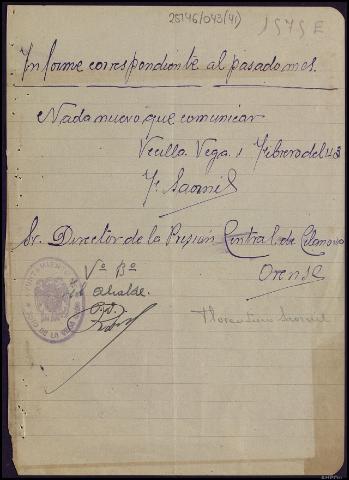 25146/043(41)
1575 E
Informe correspondiente al pasado mes.
Nada nuevo que comunicar
Vecilla. Vega. 1 Febrero del 43
F. Saornil
Sr. Director de la Prisión Central de Celanova
Orense
Vº Bº
El Alcalde.
P.D.
Florentino Saornil